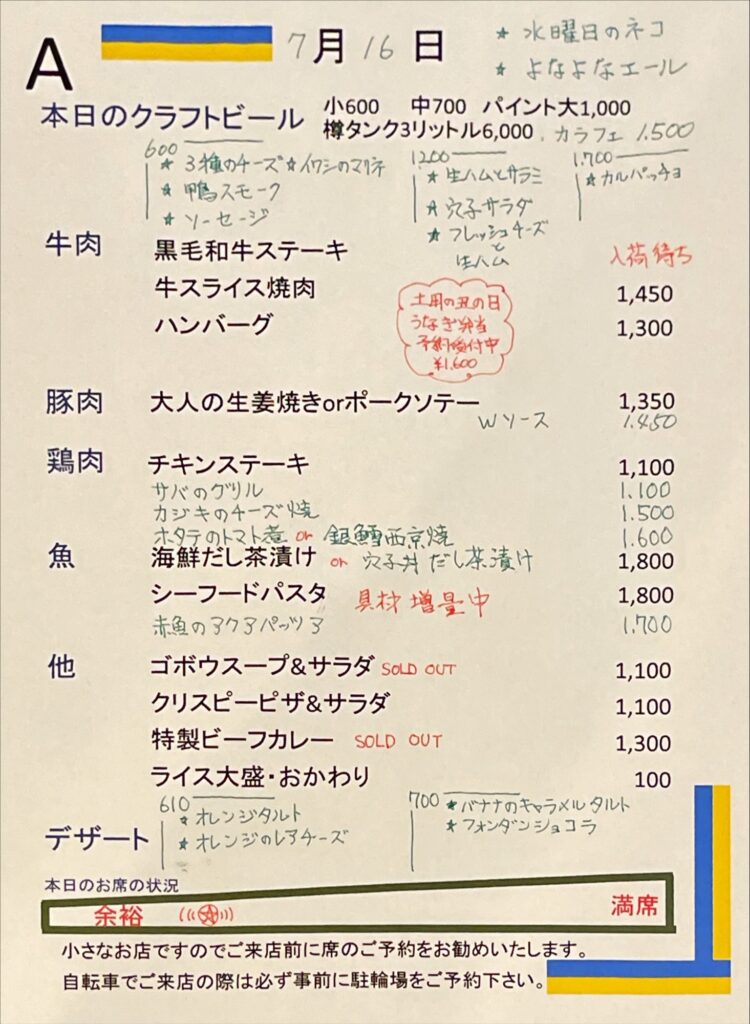 A
7月16日
★ 水曜日のネコ
★ よなよなエール
本日のクラフトビール 小600 中700 パイント大1,000
樽タンク3リットル6,000 . カラフェ 1.500
600
★ 3種のチーズ ★ イワシのマリネ
★ 鴨スモーク
★ ソーセージ
1200
★ 生ハムとサラミ
★ 穴子サラダ
★ フレッシュチーズ
と
生ハム
1.700
★ カルパッチョ
牛肉 黒毛和牛ステーキ 入荷待ち
牛スライス焼肉 1,450
ハンバーグ 1,300
土用の丑の日
うなぎ弁当
予約受付中
¥1,600
豚肉 大人の生姜焼きorポークソテー 1,350
Wソース 1.450
鶏肉 チキンステーキ 1,100
サバのグリル 1.100
カジキのチーズ焼 1.500
ホタテのトマト煮 or 銀鱈西京焼 1.600
魚 海鮮だし茶漬け or 穴子丼だし茶漬け 1,800
シーフードパスタ 具材増量中 1,800
赤魚のアクアパッツア 1.700
他 ゴボウスープ&サラダ SOLD OUT 1,100
クリスピーピザ&サラダ 1,100
特製ビーフカレー SOLD OUT 1,300
ライス大盛・おかわり 100
デザート
610
★ オレンジタルト
★ オレンジのレアチーズ
700
★ バナナのキャラメルタルト
★ フォンダンショコラ
本日のお席の状況
余裕 満席
小さなお店ですのでご来店前に席のご予約をお勧めいたします。
自転車でご来店の際は必ず事前に駐輪場をご予約下さい。